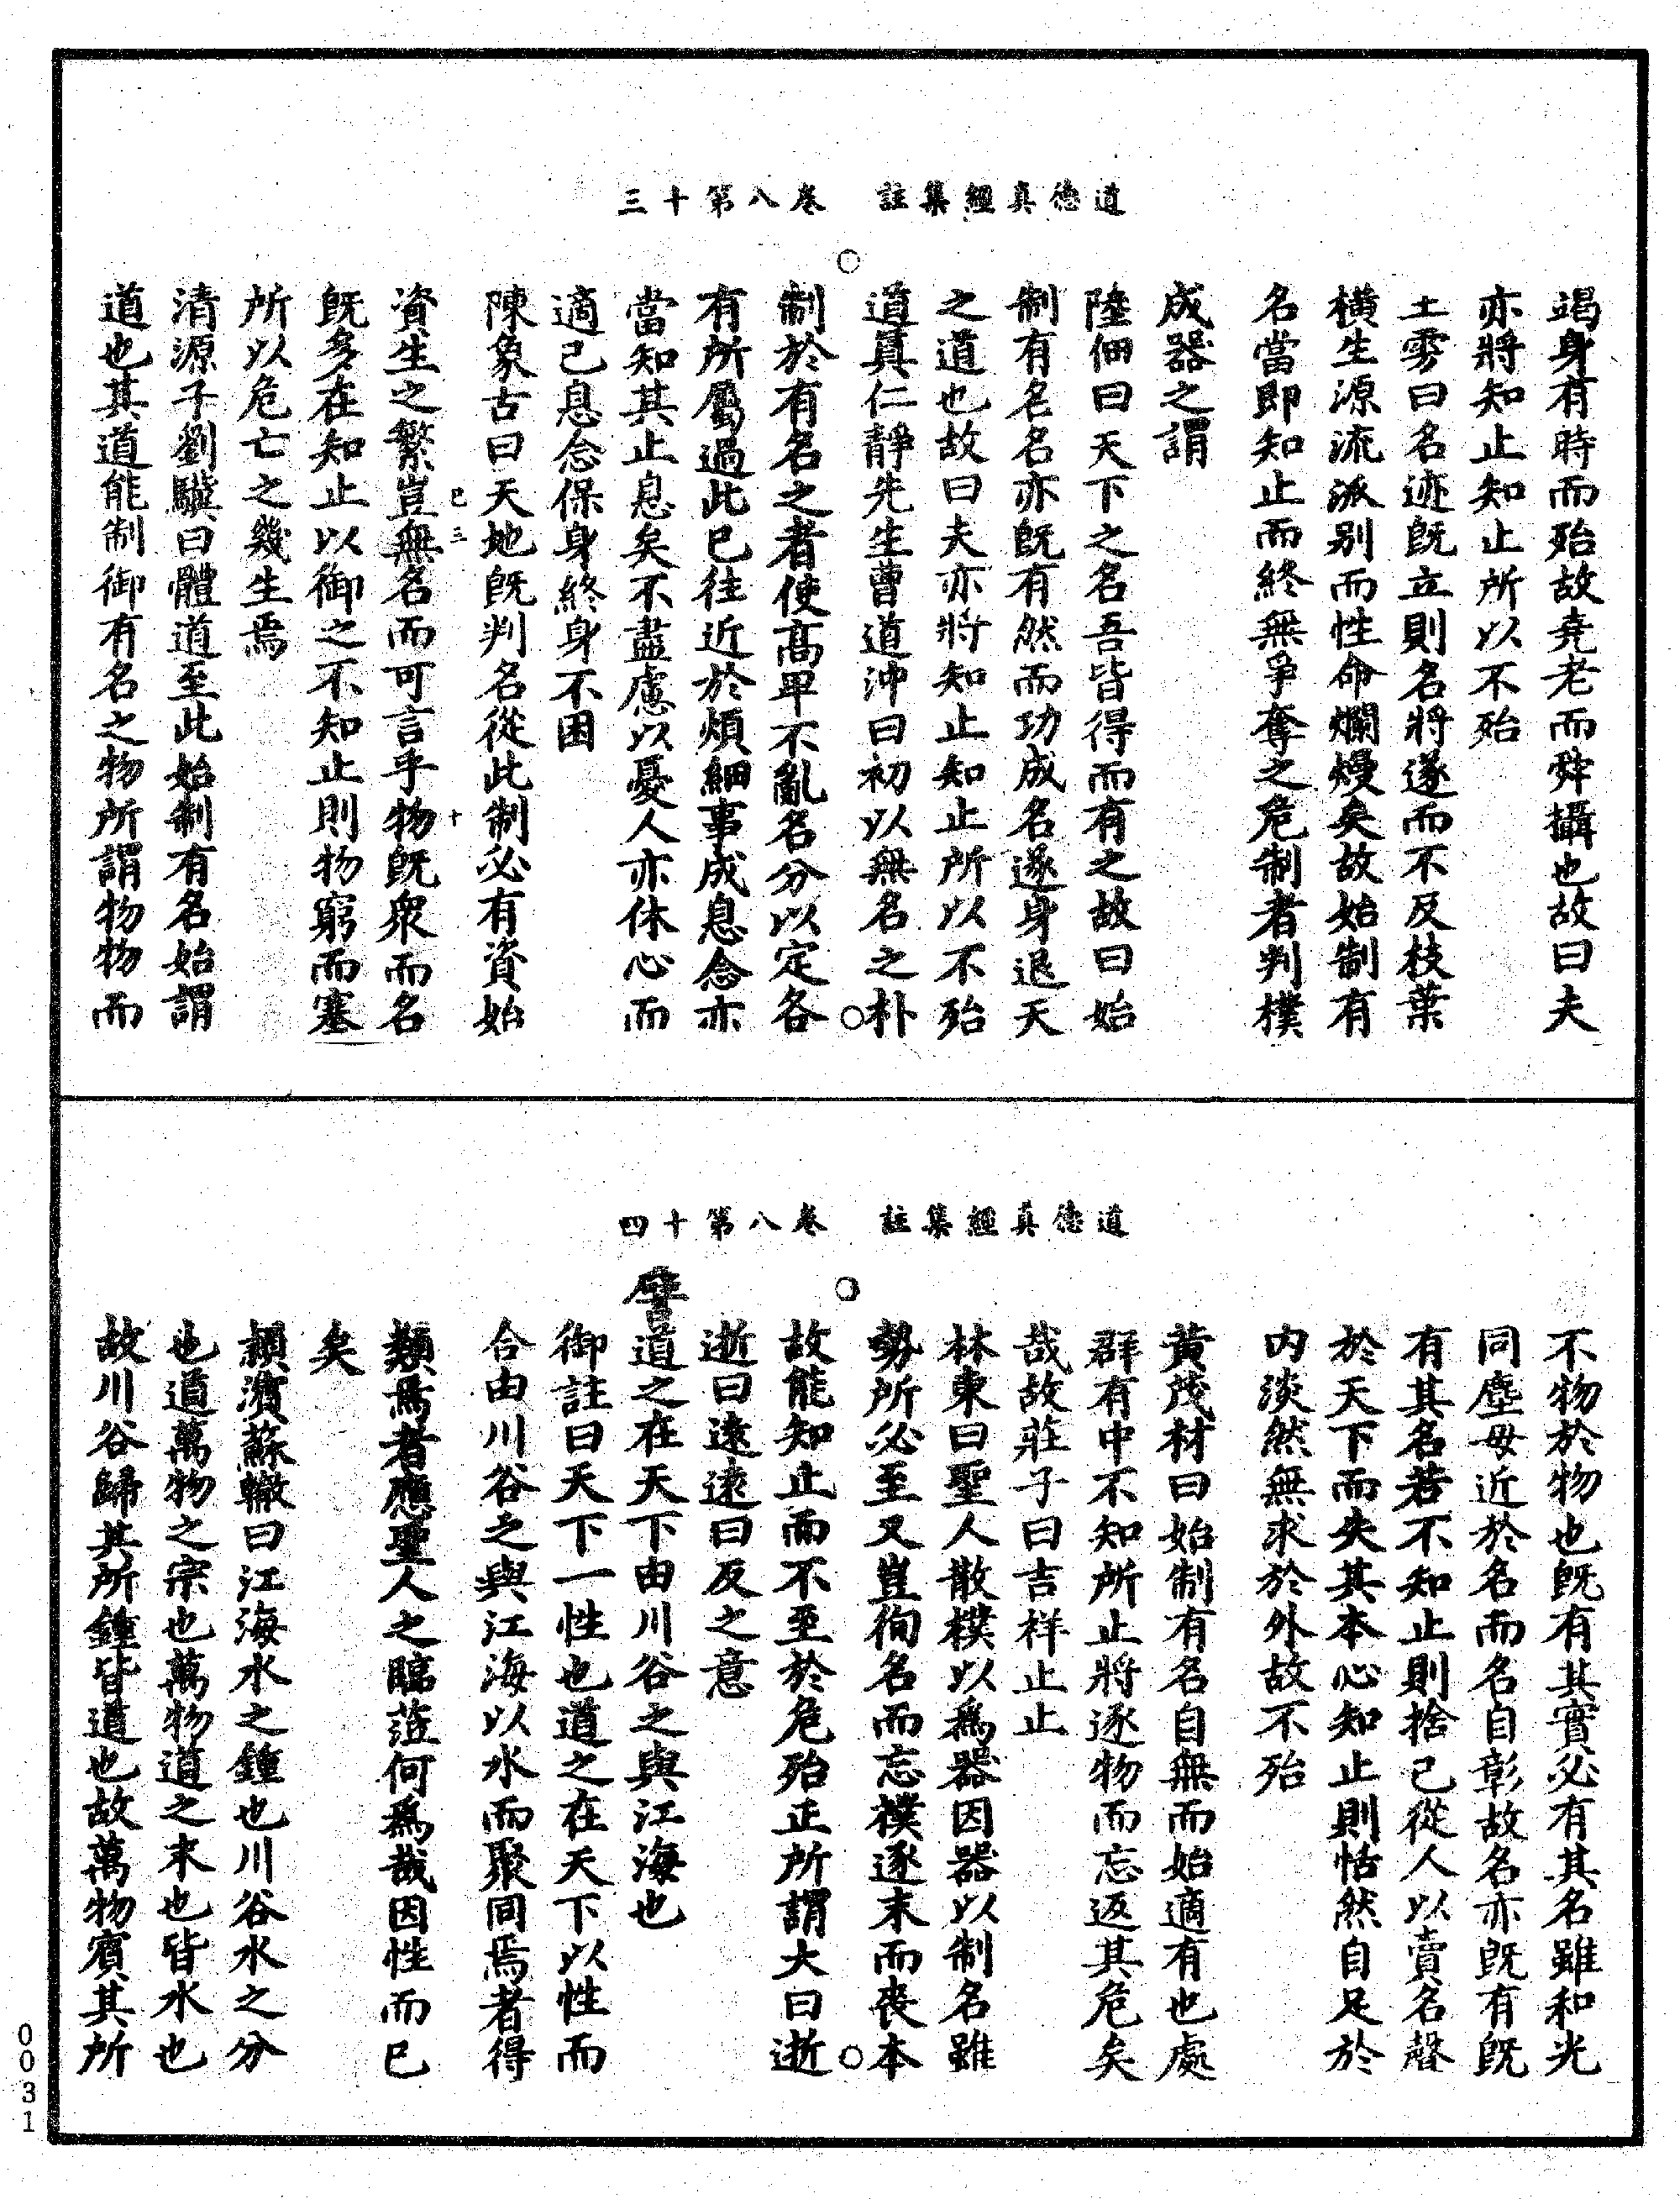 道德真經集註　卷八第十三
竭身有時而殆故堯老而舜攝也故曰夫
亦將知止知止所以不殆
王雱曰名迹既立則名將遂而不反枝葉
橫生源流派别而性命爛熳矣故始制有
名當即知止而終無爭奪之危制者判樸
成器之謂
陸佃曰天下之名吾皆得而有之故曰始
制有名名亦既有然而功成名遂身退天
之道也故曰夫亦將知止知止所以不殆
道真仁靜先生曹道沖曰初以無名之朴
制於有名之者使高卑不亂名分以定各
有所屬過此已往近於煩細事成息念亦
當知其止息矣不盡慮以憂人亦休心而
適己息念保身終身不困
陳象古曰天地既判名從此制必有資始
資生之繁豈無名而可言乎物既衆而名
既多在知止以御之不知止則物窮而塞
所以危亡之幾生焉
清源子劉驥曰體道至此始制有名始謂
道也其道能制御有名之物所謂物物而
道德真經集註　卷八第十四
不物於物也既有其實必有其名雖和光
同塵毋近於名而名自彰故名亦既有既
有其名若不知止則捨己從人以賣名聲
於天下而失其本心知止則恬然自足於
内淡然無求於外故不殆
黃茂材曰始制有名自無而始適有也處
群有中不知所止將逐物而忘返其危矣
哉故莊子曰吉祥止止
林東曰聖人散樸以爲器因器以制名雖
勢所必至又豈徇名而忘樸逐末而喪本
故能知止而不至於危殆正所謂大曰逝
逝曰遠遠曰反之意
譬道之在天下由川谷之與江海也
御註曰天下一性也道之在天下以性而
合由川谷之與江海以水而聚同焉者得
類焉者應聖人之臨蒞何爲哉因性而已
矣
頴濱蘇轍曰江海水之鍾也川谷水之分
也道萬物之宗也萬物道之末也皆水也
故川谷歸其所鍾皆道也故萬物賓其所
己三
十
0031